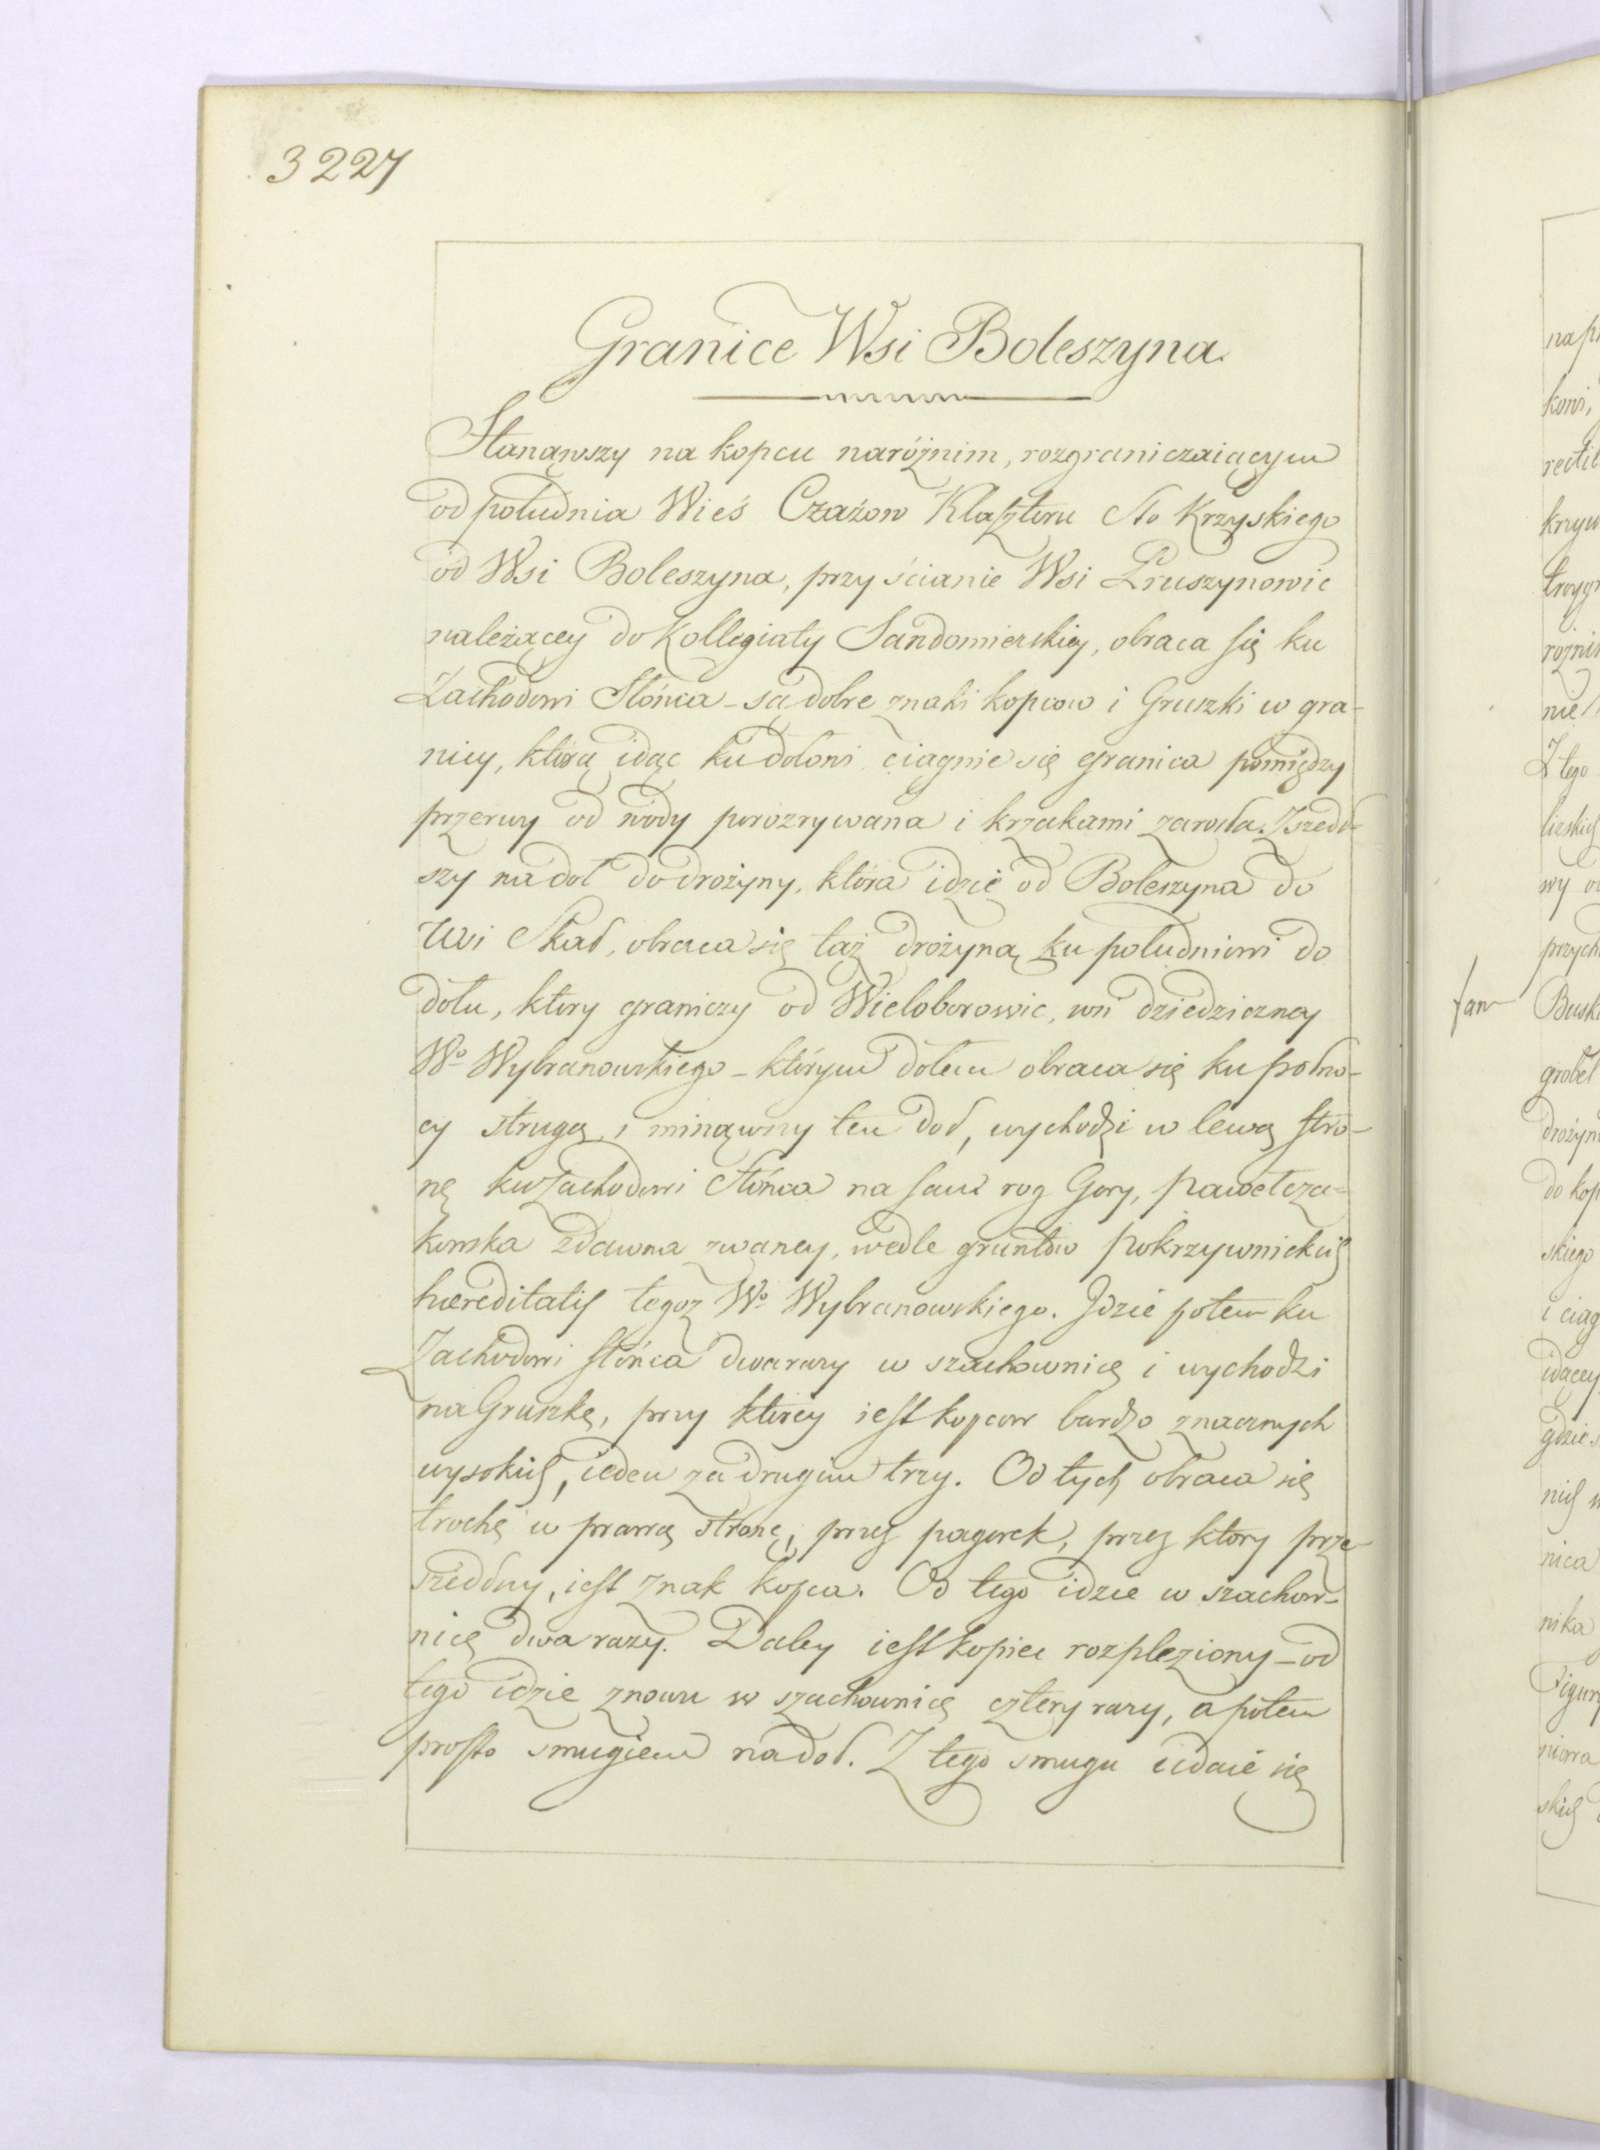 3227
Granice Wsi Boleszyna
Stanąwszy na kopcu naróżnim, rozgraniczaiącym
od południa Wieś Czażow Klasztoru Sto Krzyskiego
od Wsi Boleszyna, przy ścianie Wsi Pruszynowic
należącey do Kollegiaty Sandomierskiey, obraca się ku
Zachodowi Słońca - są dobre znaki kopcow i Gruszki w gra-
nicy, którą idąc ku dołowi ciągnie się granica pomiędzy
przerwy od wody porozrywana i krzakami zarosła. Zszedł-
szy na doł do drożyny, która idzie od Boleszyna do
Wsi Skał, obraca się tąż drożyną ku południowi do
dołu, ktory graniczy od Wieloborowic, wsi dziedziczney
Wo Wybranowskiego - którym dołem obraca się ku połno-
cy strugą, i minąwszy ten doł, wychodzi w lewą stro-
nę ku Zachodowi Słońca na sam rog Gory, pawełcza-
kowska zdawna zwaney, wedle gruntow pokrzywnickich
haereditatis tegoż Wo Wybranowskiego. Idzie potem ku
Zachodowi słońca dwa razy w szachownicę i wychodzi
na Gruszkę, przy ktorey iest kopcow bardzo znacznych
wysokich, ieden za drugim trzy. Od tych obraca się
trochę w prawą stronę, przez pagorek, przez ktory prze
szedłszy, iest znak kopca. Od tego idzie w szachow-
nicę dwa razy. Daley iest kopiec rozpleziony - od
tego idzie znowu w szachownicę cztery razy, a potem
prosto smugiem na doł. Z tego smugu udaie się
fam